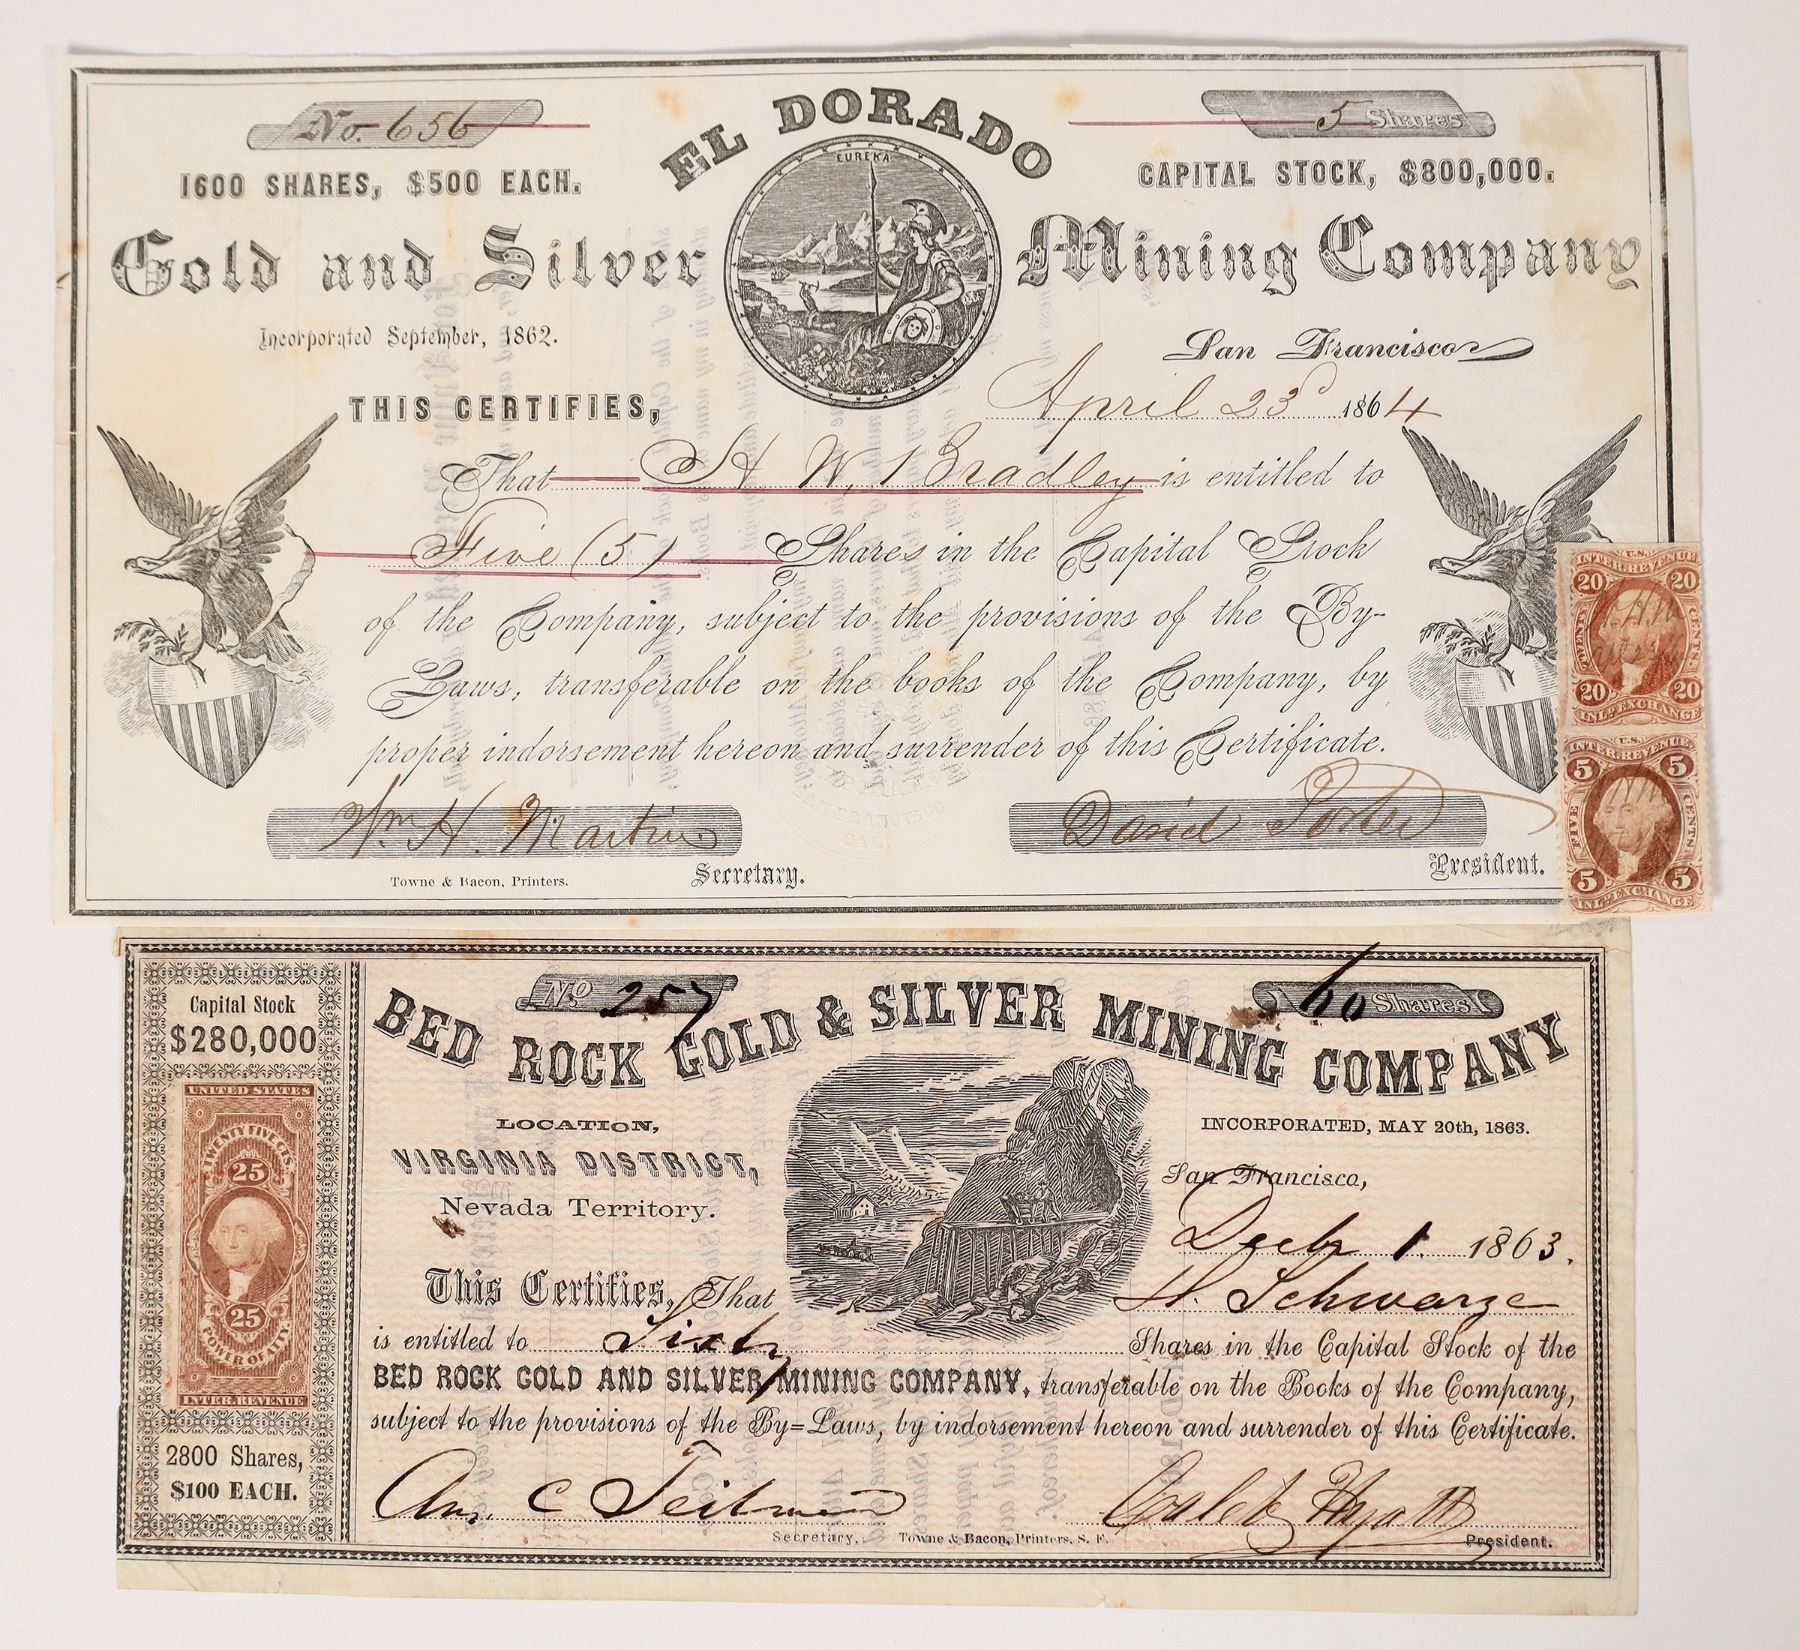 No. 656
EL DORADO
5 Shares
1600 SHARES, $500 EACH.
EUREKA
CAPITAL STOCK, $800,000.
Gold and Silver Mining Company
Incorporated September, 1862.
San Francisco
April 23d 1864
THIS CERTIFIES,
That H W, Bradley is entitled to
Five (5) Shares in the Capital Stock
of the Company, subject to the provisions of the By-
Laws, transferable on the books of the Company, by
proper indorsement hereon and surrender of this Certificate.
Wm H. Martin
Secretary.
David Porter
President.
Towne & Bacon, Printers.
U.S.
INTER. REVENUE
20 20
TWENTY CENTS.
20 20
INL. EXCHANGE
U.S.
INTER. REVENUE
5 5
FIVE CENTS
5 5
INL. EXCHANGE
Capital Stock
$280,000
UNITED STATES
TWENTY FIVE CTS.
25
25
POWER OF ATTY.
INTER. REVENUE
2800 Shares,
$100 EACH.
No 257
60 Shares
BED ROCK GOLD & SILVER MINING COMPANY
LOCATION,
VIRGINIA DISTRICT,
Nevada Territory.
INCORPORATED, MAY 20th, 1863.
San Francisco,
Decbr 1 1863.
This Certifies, That H. Schwarze
is entitled to Sixty Shares in the Capital Stock of the
BED ROCK GOLD AND SILVER MINING COMPANY, transferable on the Books of the Company,
subject to the provisions of the By=Laws, by indorsement hereon and surrender of this Certificate.
Caleb Hyatt
Secretary.
Towne & Bacon, Printers, S. F.
President.